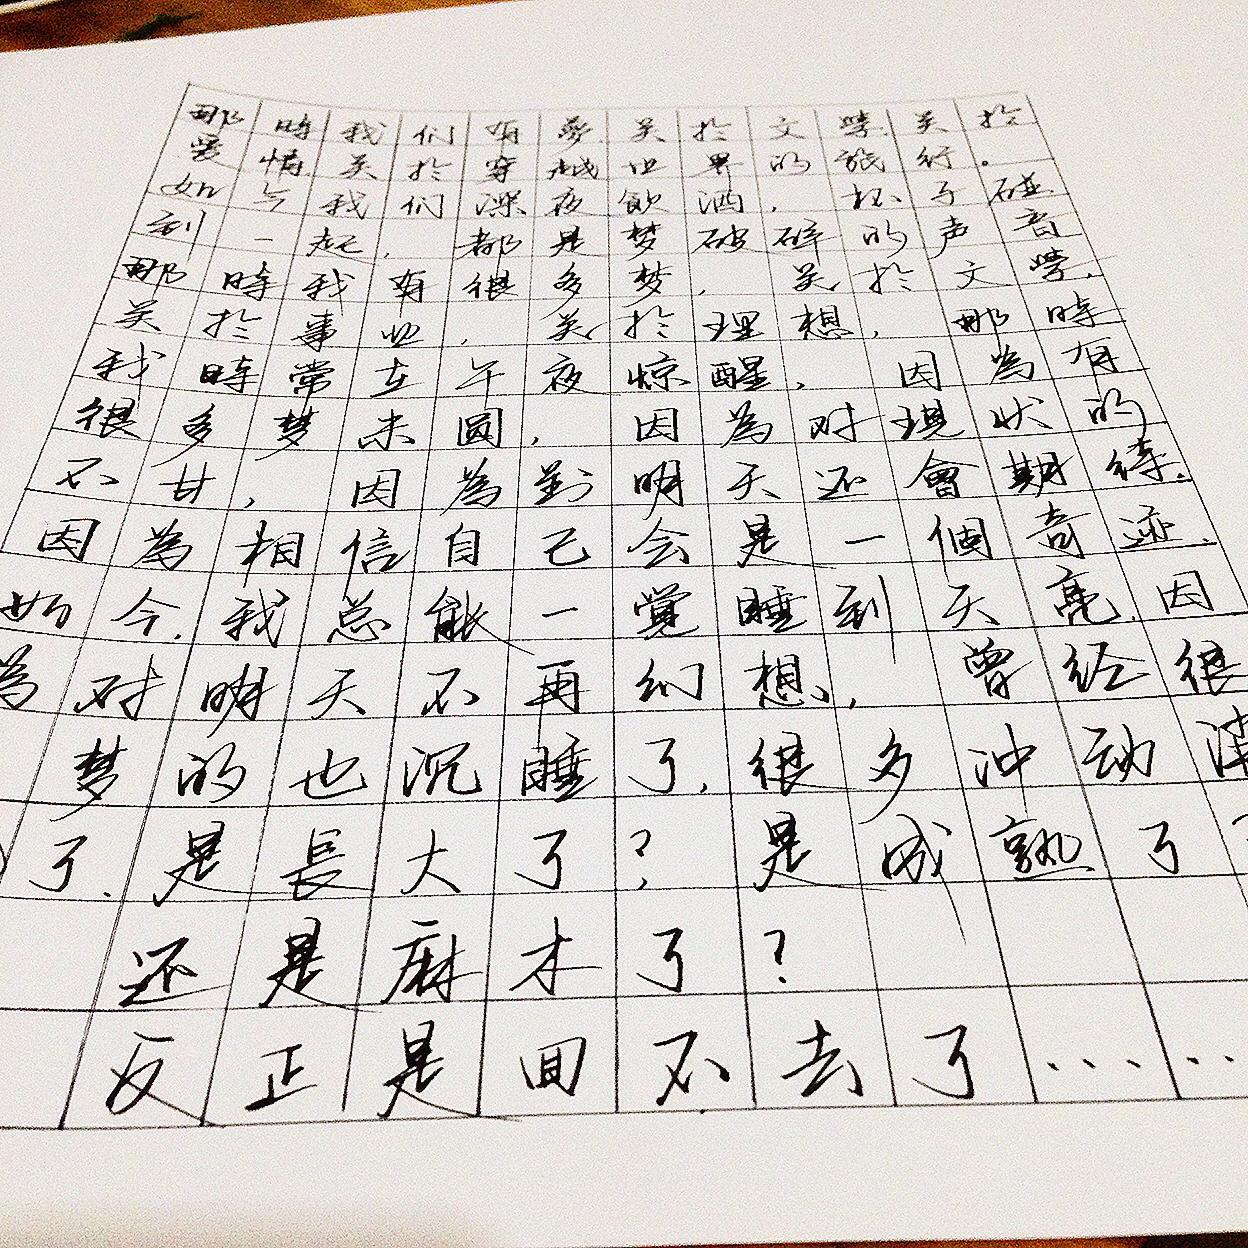 那時我们有夢关於文學.关於
爱情.关於穿越世界的旅行。
如今我们深夜飲酒，杯子碰
到一起，都是梦破碎的声音
那時我有很多梦，关於文學.
关於事业，关於理想，那時
我時常在午夜惊醒，因為有
很多梦未圆，因為对現状的
不甘，因為對明天还會期待.
因為相信自己会是一個奇迹.
如今.我总能一覺睡到天亮.因
為对明天不再幻想，曾经很
梦的也沉睡了.很多冲动
了.是長大了？是成熟了？
还是麻木了？
反正是回不去了……